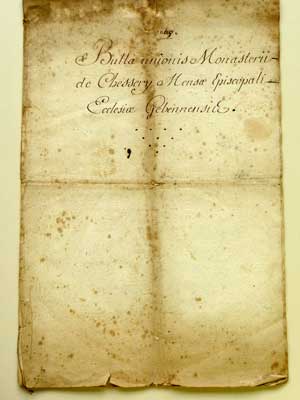 Bulla unionis Monasterii
de Chessery Mensæ Episcopali
Ecclesiæ Gebennensis.